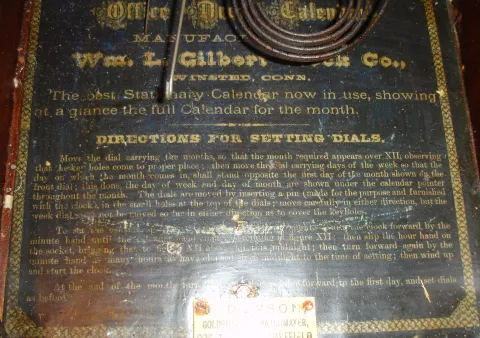 Office Dial Calendar
MANUFAC
Wm. L. Gilbert Clock Co.,
WINSTED, CONN.
The best Stationary Calendar now in use, showing
at a glance the full Calendar for the month.
DIRECTIONS FOR SETTING DIALS.
Move the dial carrying the months, so that the month required appears over XII, observing
that the key holes come to proper place; then move the dial carrying days of the week so that the
day on which the month comes in, shall stand opposite the first day of the month shown on the
front dial; this done, the day of week and day of month are shown under the calendar pointer
throughout the month. The dials are moved by inserting a pin (made for the purpose and furnished
with the clock) in the small holes at the top of the dials; move carefully in either direction, but the
week dial must not be moved so far in either direction as to cover the keyholes.
To start the clock forward by the
minute hand until the figure XII; then slip the hour hand on
the socket, bringing that to XII midnight; then turn forward again by the
minute hand as many hours as have midnight to the time of setting; then wind up
and start the clock.
At the end of the month turn forward to the first day, and set dials
as before.
DYSON
GOLDSMITH WATCHMAKER,
SHEFFIELD